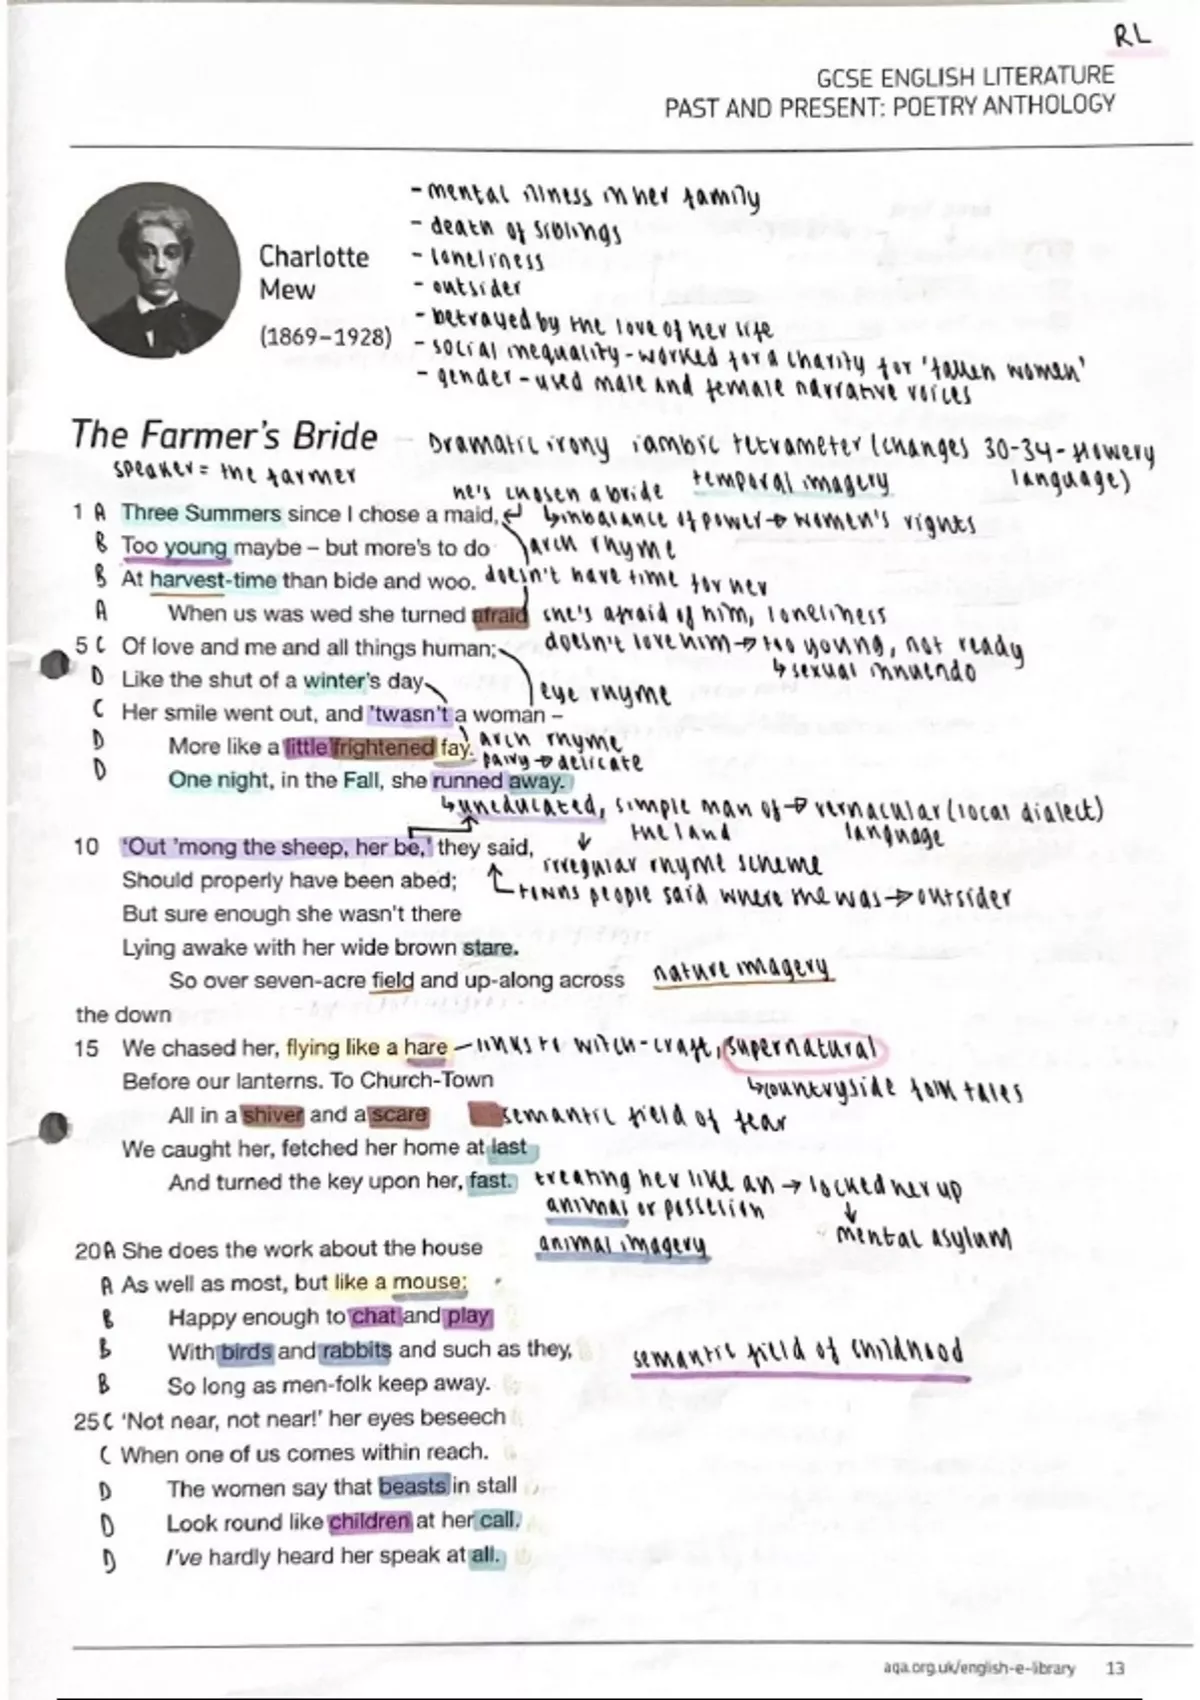 RL
GCSE ENGLISH LITERATURE
PAST AND PRESENT: POETRY ANTHOLOGY
Charlotte
Mew
(1869–1928)
- mental illness in her family
- death of siblings
- loneliness
- outsider
- betrayed by the love of her life
- social inequality - worked for a charity for 'fallen women'
- gender - used male and female narrative voices
The Farmer's Bride
Dramatic irony iambic tetrameter (changes 30-34 - flowery
language)
speaker = the farmer
temporal imagery
he's chosen a bride
1 A Three Summers since I chose a maid, ↳ inbalance of power → women's rights
B Too young maybe – but more's to do arch rhyme
B At harvest-time than bide and woo. doesn't have time for her
A When us was wed she turned afraid she's afraid of him, loneliness
5 C Of love and me and all things human; doesn't love him → too young, not ready
↳ sexual innuendo
D Like the shut of a winter's day eye rhyme
C Her smile went out, and 'twasn't a woman –
D More like a little frightened fay. arch rhyme
fairy → delicate
D One night, in the Fall, she runned away.
↳ uneducated, simple man of → vernacular (local dialect)
the land language
10 'Out 'mong the sheep, her be,' they said, irregular rhyme scheme
Should properly have been abed; towns people said where she was → outsider
But sure enough she wasn't there
Lying awake with her wide brown stare.
So over seven-acre field and up-along across nature imagery
the down
15 We chased her, flying like a hare – links to witch-craft, supernatural
Before our lanterns. To Church-Town ↳ countryside folk tales
All in a shiver and a scare semantic field of fear
We caught her, fetched her home at last
And turned the key upon her, fast. treating her like an → locked her up
animal or possesion ↓
mental asylum
20 A She does the work about the house animal imagery
A As well as most, but like a mouse:
B Happy enough to chat and play
B With birds and rabbits and such as they, semantic field of childhood
B So long as men-folk keep away.
25 C 'Not near, not near!' her eyes beseech
C When one of us comes within reach.
D The women say that beasts in stall
D Look round like children at her call.
D I've hardly heard her speak at all.
aqa.org.uk/english-e-library 13